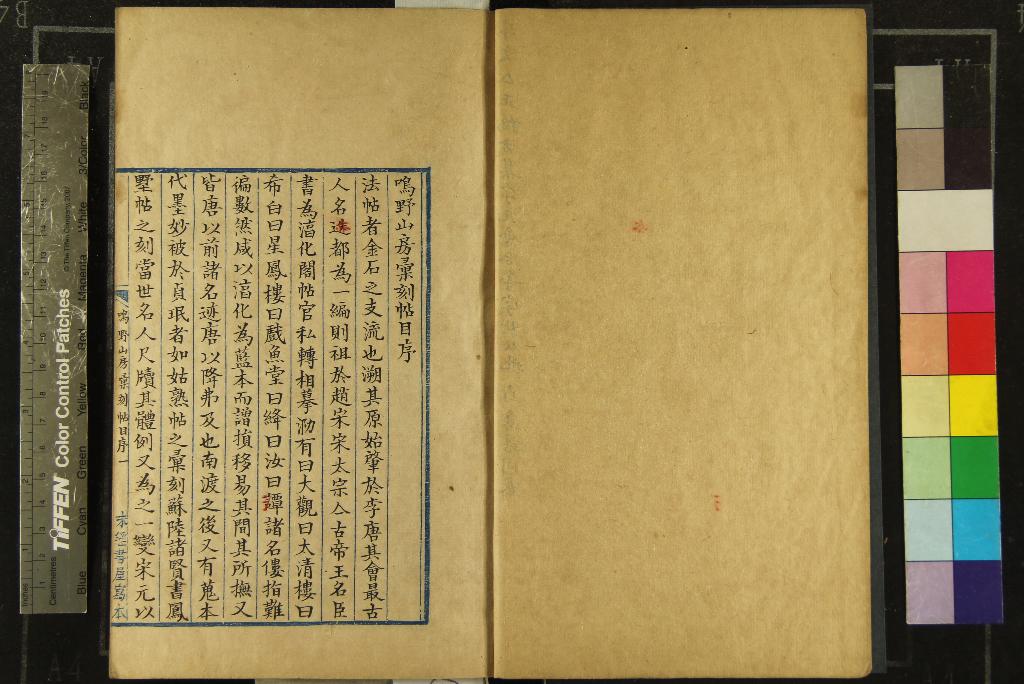 鳴野山房彙刻帖目序
法帖者金石之支流也溯其原始肇於李唐其會最古
人名迹都為一編則祖於趙宋宋太宗亼古帝王名臣
書為淳化閣帖官私轉相摹泐有曰大觀曰太清樓曰
希白曰星鳳樓曰戲魚堂曰絳曰汝曰譚諸名僂指難
徧數然咸以淳化為藍本而譄損移易其間其所撫又
皆唐以前諸名迹唐以降弗及也南渡之後又有蒐本
代墨妙被於貞珉者如姑熟帖之彙刻蘇陸諸賢書鳳
墅帖之刻當世名人尺牘其體例又為之一變宋元以
鳴野山房彙刻帖目序 一
本經書屋寫本
TIFFEN Color Control Patches
© The Tiffen Company, 2007
Inches
Centimetres
Blue
Cyan
Green
Yellow
Red
Magenta
White
3/Color
Black